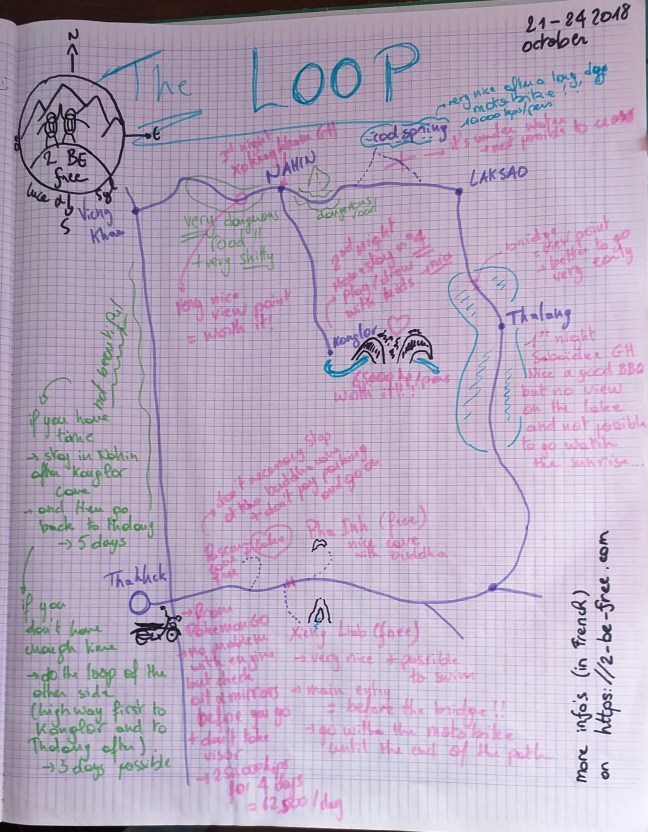 21-24 2018
october
The LOOP
N
E
S
2 BE
free
Vieng
Kham
very nice after a long day
motorbike !!!
10 000 kps/pers
cool spring
it's under water
not possible to
LAKSAO
3rd night
GH
NAHIN
very dangerous
road !!
+ very shitty
dangerous
road
very nice
view point
= worth it!
2nd night
Homestay n°4
play/draw
with kids
Konglor
worth it!!!
view point
better to go
very early
Thalang
1st night
Sabaidee GH
Nice & good BBQ
but no view
on the lake
and not possible
to go watch
the sunrise...
not beautiful
if you have
time
→ stay in Nahin
after Konglor
Cave
→ and then go
back to Thalang
→ 5 days
if you
don't have
enough time
→ do the loop of the
other side
(highway first to
Konglor and to
Thalang after)
→ 3 days possible
don't necessary stop
at the buddha cave
+ don't pay parking
and go on
Pha Inh (free)
nice cave
with buddha
Thakhek
From
PokemonGO
no problem
with engine
but check
oil & mirrors
before you go
+ don't take
visor
→ 250 000 kps
for 4 days
= 62,500/day
Xieng Liab (free)
→ very nice + possible
to swim
→ main entry
= before the bridge !!
→ go with the motorbike
until the end of the path
more info's (in French)
on https://2-be-free.com